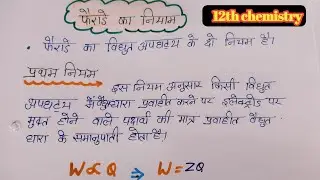 फैराडे का नियम
12th chemistry
फैराडे का विद्युत अपघट्य के दो नियम है।
प्रथम नियम
इस नियम अनुसार किसी विद्युत
अपघट्य में धारा प्रवाहीत करने पर इलेक्ट्रोड पर
मुक्त होने वाले पदार्थ की मात्र प्रवाहीत वैद्युत
धारा के समानुपाती होता है।
W ∝ Q → W = ZQ